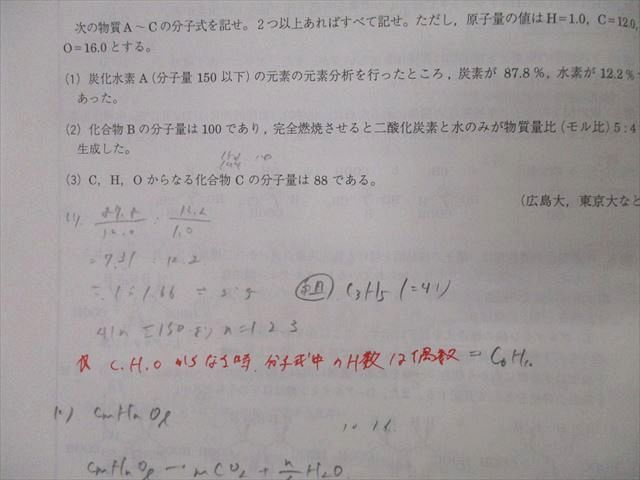 次の物質A～Cの分子式を記せ。2つ以上あればすべて記せ。ただし，原子量の値はH=1.0，C=12.0,
O=16.0とする。
(1) 炭化水素A(分子量150以下)の元素の元素分析を行ったところ，炭素が 87.8%，水素が12.2%
あった。
(2) 化合物Bの分子量は100であり，完全燃焼させると二酸化炭素と水のみが物質量比(モル比) 5:4
生成した。
(3) C，H，Oからなる化合物Cの分子量は88である。
(広島大，東京大など
(1) 87.8/12.0 : 12.2/1.0
=7.31 : 12.2
≒1:1.66 ≒ 3:5 組 C3H5 (=41)
41n ≦150より n=1.2.3
C.H.O からなる時、分子式中のH数は偶数 = C6H10
(2) CmHnOl
CmHnOl → mCO2 + n/2 H2O